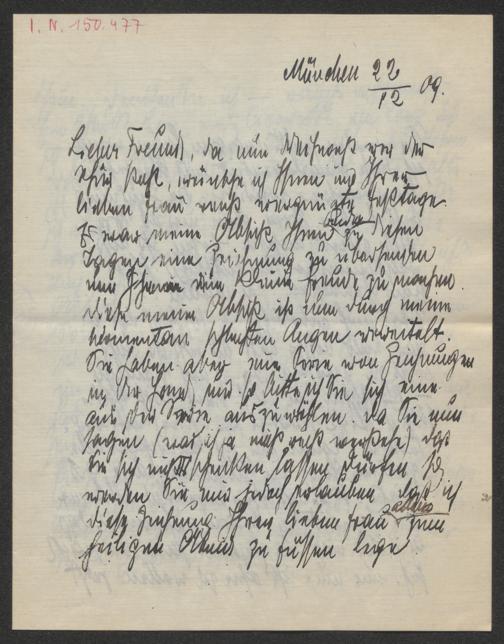 I. N. 150.477
München 22/12 09.
Lieber Freund, da nun Weihnacht vor der
Thür steht, wünsche ich Ihnen und Ihrer
lieben Frau recht vergnügte Festtage.
Es war meine Absicht Ihnen zu diesen
Tagen eine Zeichnung zu übersenden
um Ihnen eine kleine Freude zu machen.
Diese meine Absicht ist nun durch meine
momentan schlechten Augen vereitelt.
Sie haben aber eine Serie von Zeichnungen
in der Hand, und so bitte ich Sie sich eine
aus der Serie auszuwählen. Da Sie nun
sagen (was ich ja nicht recht verstehe) daß
Sie sich nichts schenken lassen dürfen so
werden Sie mir jedoch erlauben daß ich
diese Zeichnung Ihrer lieben Frau zum
heiligen Abend zu Füssen lege